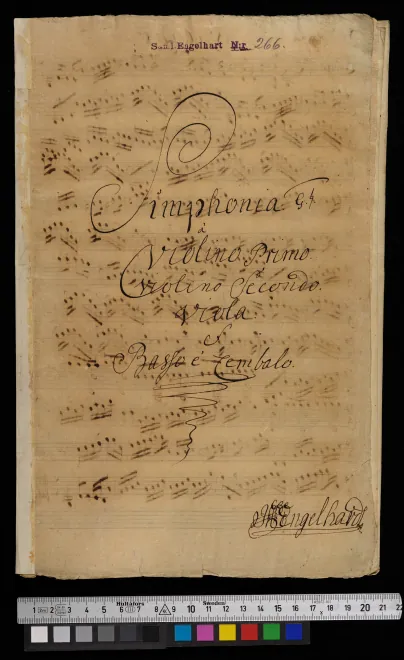 Saml Engelhart No 266.
Simphonia G♮
à
Violino Primo
Violino Secondo.
Viola
è
Basso è Cembalo.
Engelhard
1 2 3 4 5 6 7 8 9 10 11 12 13 14 15 16 17 18 19 20 21 22
Hultafors
Sweden